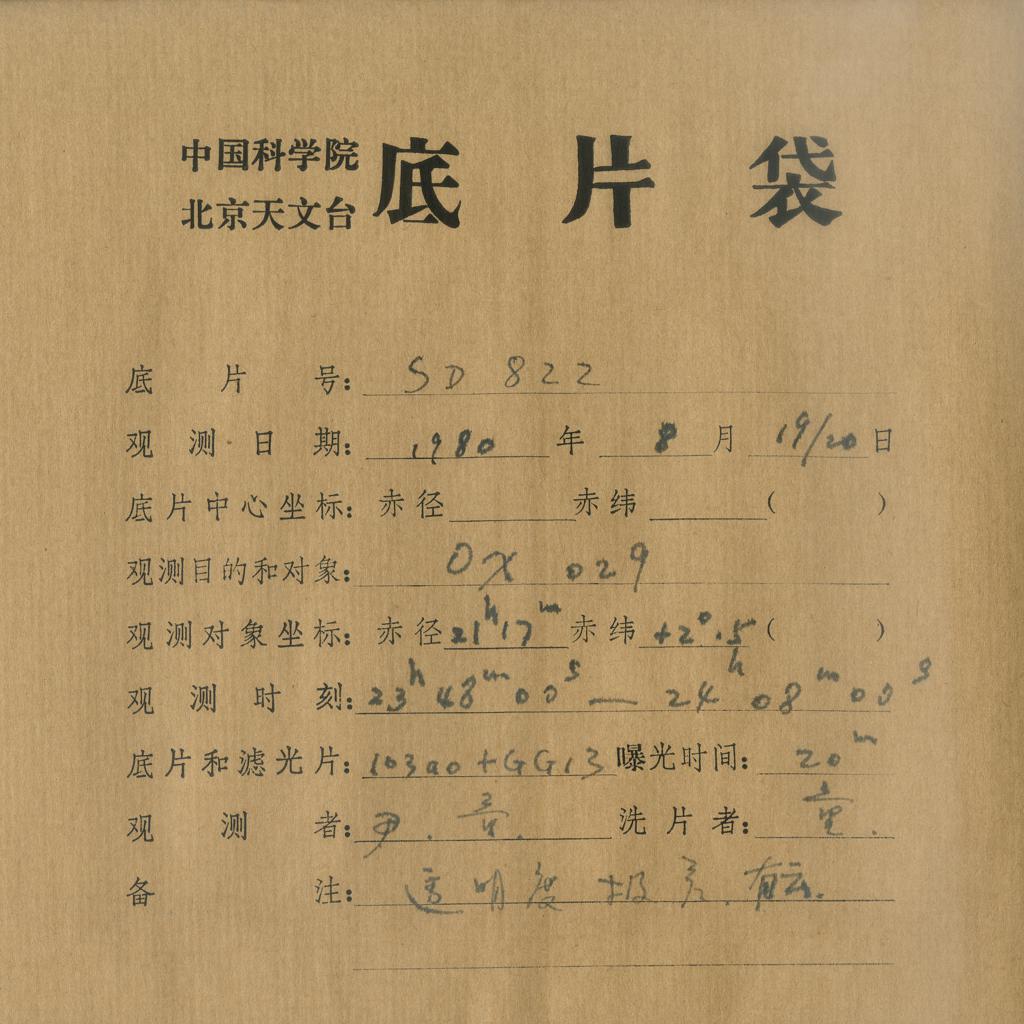 中国科学院
北京天文台
底片袋
底片号: SD 822
观测日期: 1980 年 8 月 19/20 日
底片中心坐标: 赤径 赤纬 ( )
观测目的和对象: OX 029
观测对象坐标: 赤径 21h17m 赤纬 +2°.5 ( )
观测时刻: 23h48m00s — 24h08m00s
底片和滤光片: 103aO+GG13 曝光时间: 20m
观测者: 尹. 洗片者: 童.
备注: 透明度极差. 有云.